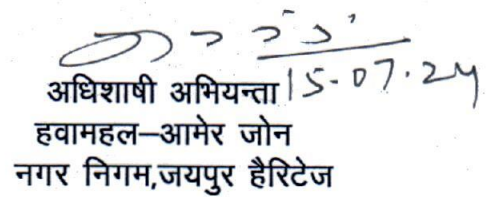 अधिशाषी अभियन्ता 15-07-24
हवामहल–आमेर जोन
नगर निगम,जयपुर हैरिटेज